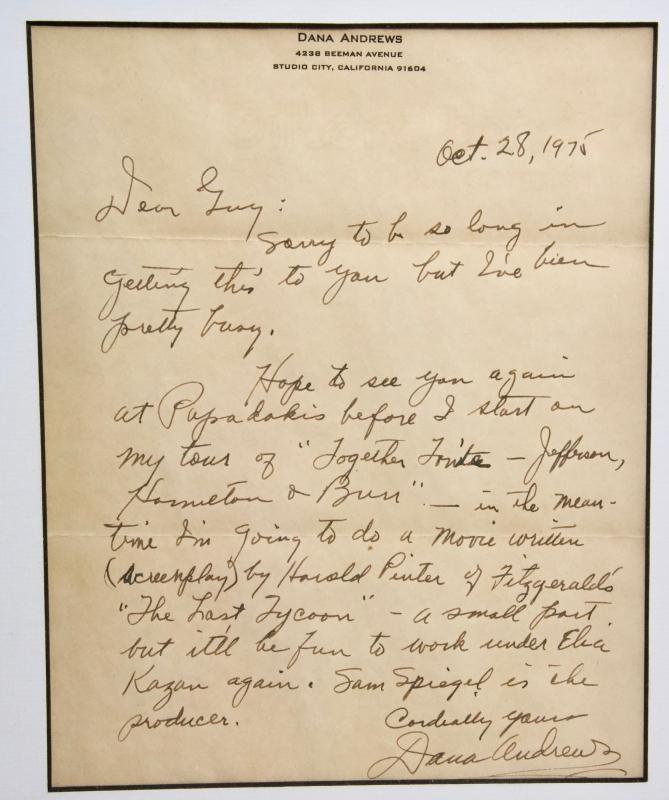 DANA ANDREWS
4238 BEEMAN AVENUE
STUDIO CITY, CALIFORNIA 91604
Oct. 28, 1975
Dear Guy:
Sorry to be so long in
getting this to you but I've been
pretty busy.
Hope to see you again
at Papadakis before I start on
my tour of "Together Tonite - Jefferson,
Hamilton & Burr" - in the mean-
time I'm going to do a movie written
(screenplay) by Harold Pinter of Fitzgerald's
"The Last Tycoon" - a small part
but it'll be fun to work under Elia
Kazan again. Sam Spiegel is the
producer.
Cordially yours
Dana Andrews